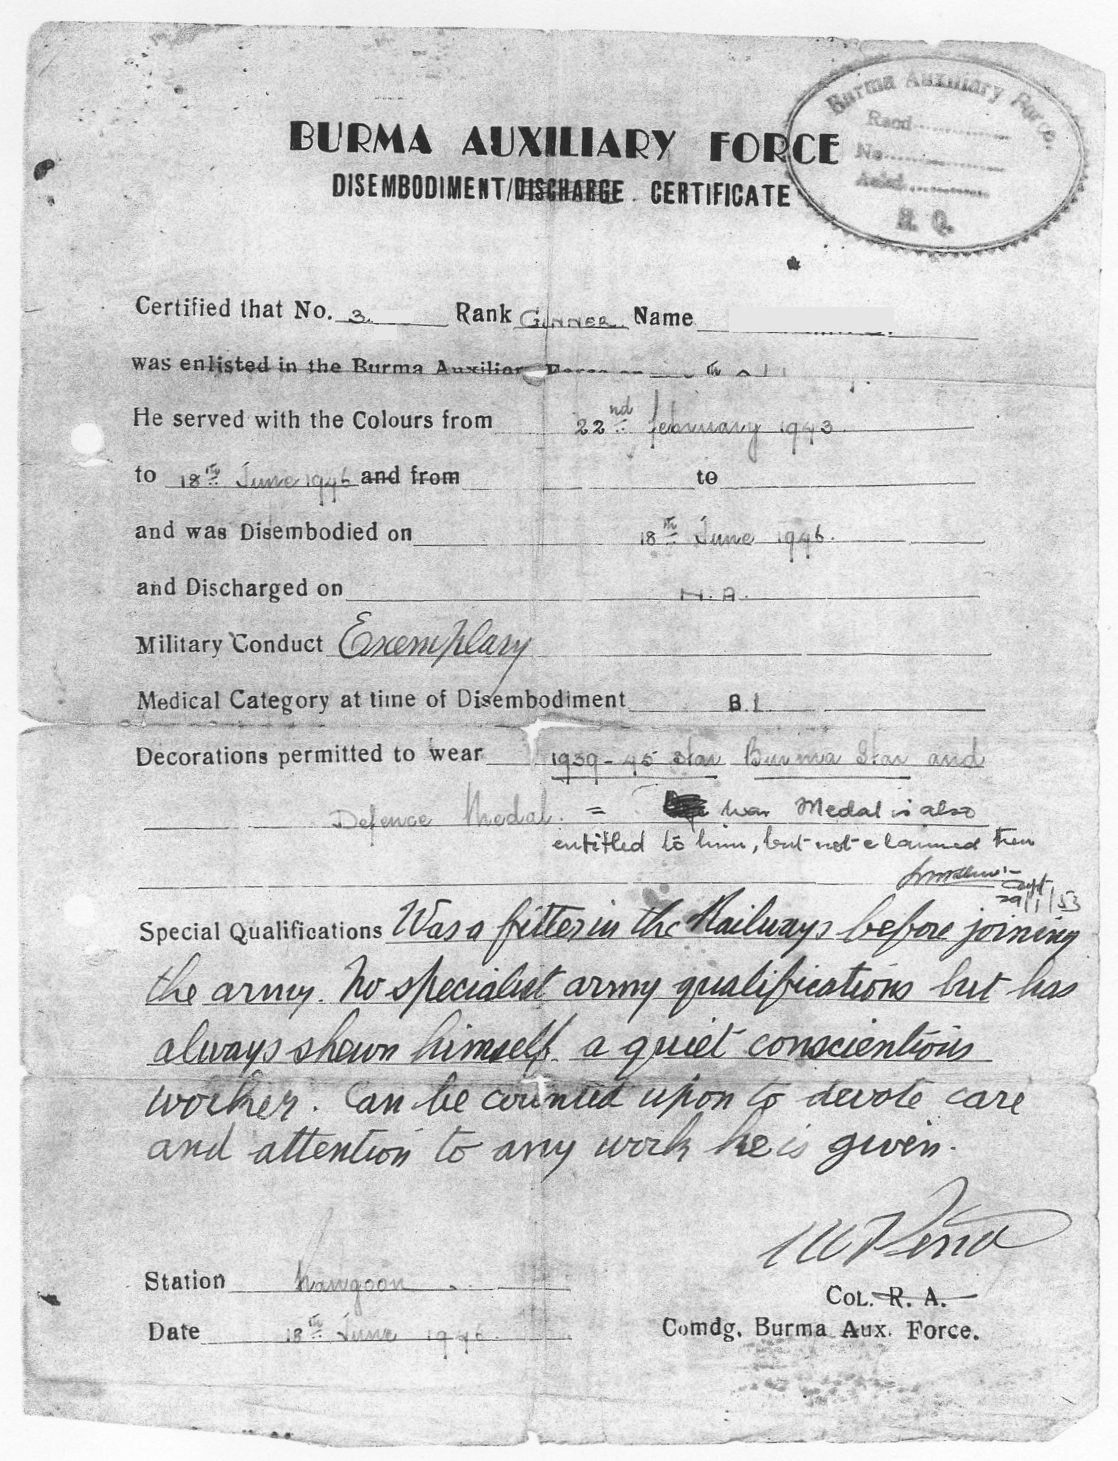 Burma Auxiliary Force.
Recd..............
No..............
Ackd..............
H. Q.
BURMA AUXILIARY FORCE
DISEMBODIMENT/DISCHARGE CERTIFICATE
Certified that No. 3 Rank GUNNER Name
was enlisted in the Burma Auxiliary Force on
He served with the Colours from 22nd february 1943
to 18th June 1946 and from to
and was Disembodied on 18th June 1946.
and Discharged on N.A.
Military Conduct Exemplary
Medical Category at time of Disembodiment B.1.
Decorations permitted to wear 1939-45 Star Burma Star and
Defence Medal. = War Medal is also
entitled to him, but not claimed then
Capt
29/1/53
Special Qualifications Was a fitter in the Railways before joining
the army. No specialist army qualifications but has
always shewn himself a quiet conscientious
worker. Can be counted upon to devote care
and attention to any work he is given.
Station Rangoon
COL. R. A.
Date 18th June 1946.
Comdg. Burma Aux. Force.